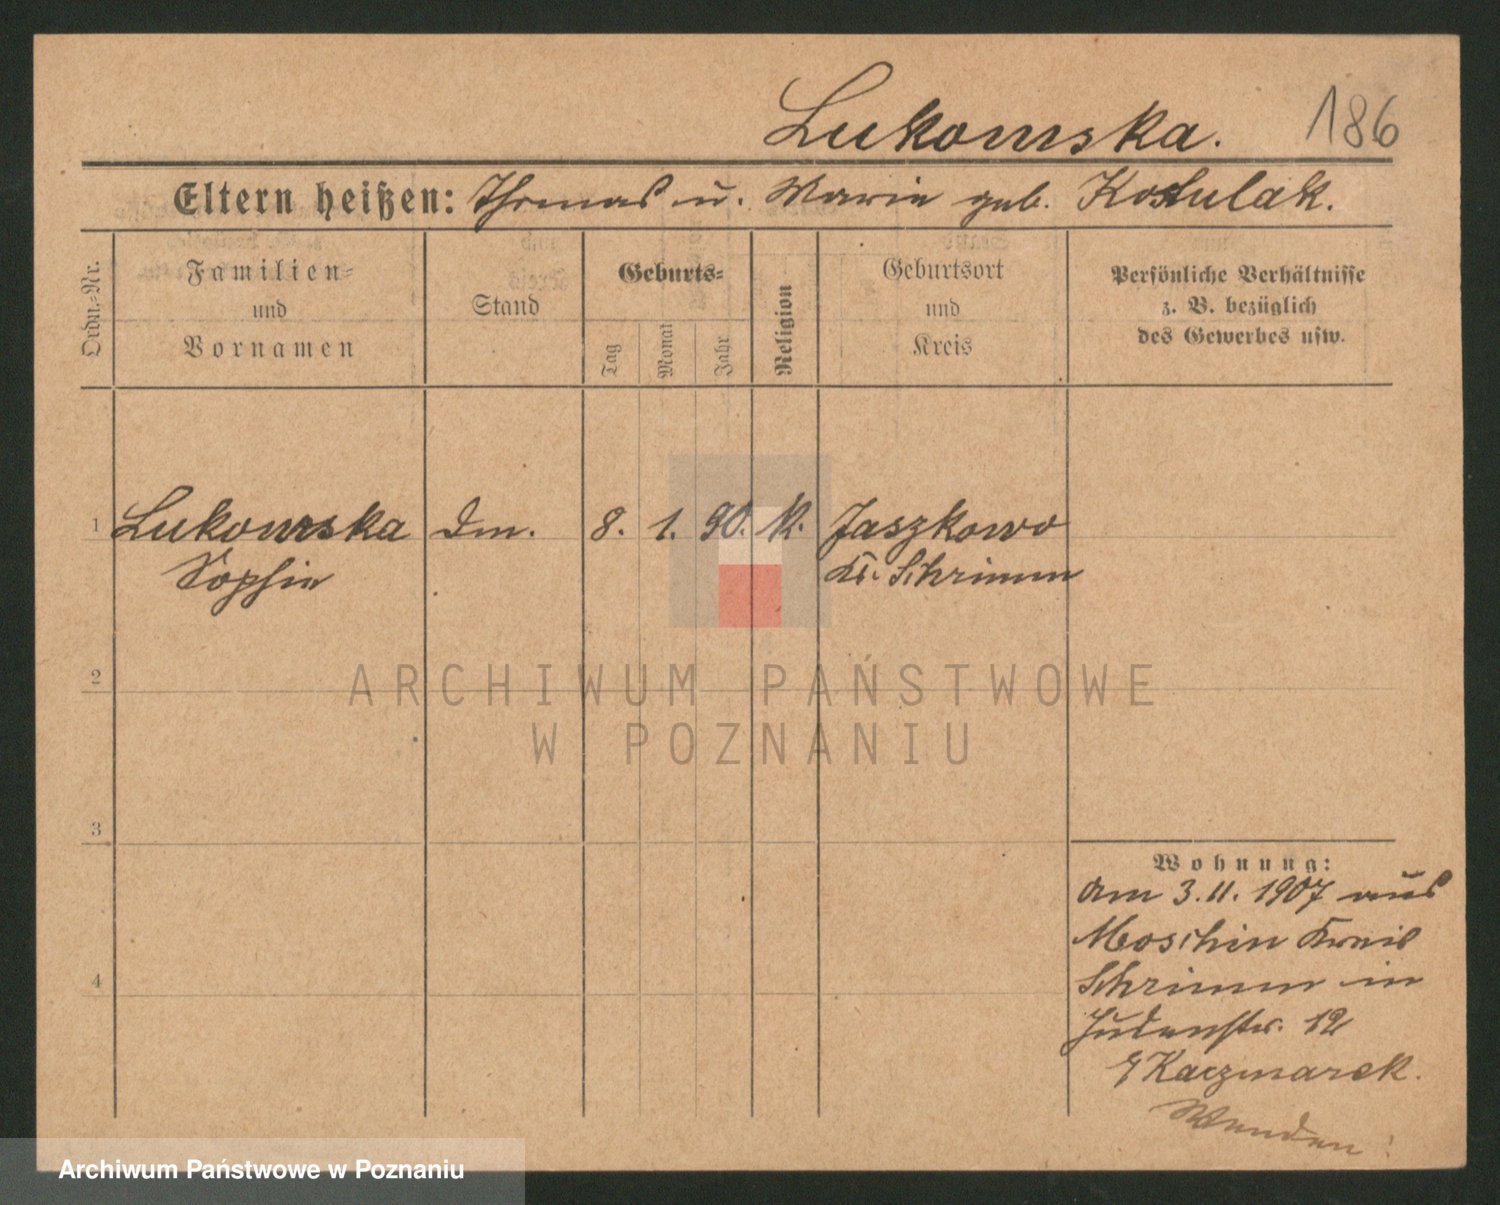 Lukomska. 186
Eltern heißen: Thomas u. Marie geb. Kostulak.
Ordn.-Nr.
Familien-
und
Vornamen
Stand
Geburts-
Tag
Monat
Jahr
Religion
Geburtsort
und
Kreis
Persönliche Verhältnisse
z. B. bezüglich
des Gewerbes usw.
1 Lukomska Dm. 8. 1. 90. K. Jaszkowo
Sophie Kr. Schrimm
2
3
4
Wohnung:
Am 3.11.1907 aus
Moschin Kreis
Schrimm in
Judenstr. 12
Kaczmarek.
Wenden!
ARCHIWUM PAŃSTWOWE
W POZNANIU
Archiwum Państwowe w Poznaniu